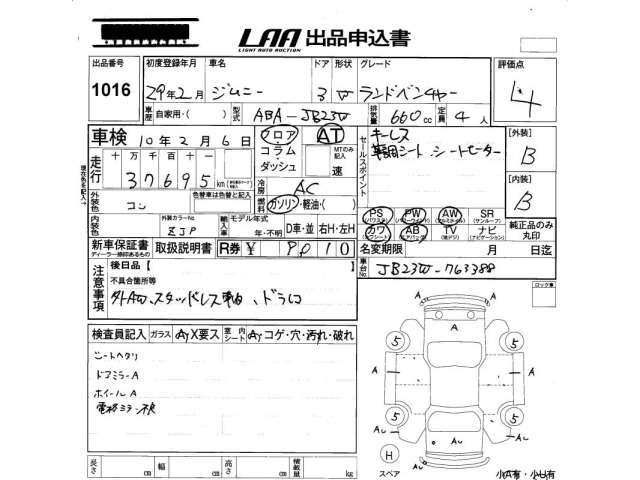 LAA 出品申込書
LIGHT AUTO AUCTION
出品番号 初度登録年月 車名 ドア 形状 グレード 評価点
1016 29年2月 ジムニー 3 W ランドベンチャー 4
車歴 自家用・( ) 型式 ABA-JB23W 排気量 660cc 定員 4人
車検 10年2月6日 フロア AT キーレス [外装]
コラム MTのみ記入 専用シート シートヒーター B
ダッシュ 速 セールスポイント
走行 十万千百十 37695 km
現在色を記入
外装色 コン 色替車は色替と記入 冷房 AC [内装]
燃料 ガソリン・軽油・( ) B
PS PW AW SR
(パワステ) (パワーウインド) (アルミホイル) (サンルーフ)
カワ AB TV ナビ
(カワシート) (エアバッグ) (地デジ) (ナビゲーション)
純正品のみ丸印
内装色 外装カラーNo. ZJP 輸入車 モデル年式 年・不明 D車・並 右H・左H
新車保証書 取扱説明書 R券 ¥ 9010 名変期限 月 日迄
ディーラー捺印あるもの
車台No JB23W-763388
注意事項 後日品【 】
不具合箇所等
外AW、スタッドレス4軸、ドラレコ
ロック車
検査員記入 ガラス Ⓐy X要ス 室内シート Ⓐy コゲ・穴・汚れ・破れ
シートヘタリ
ドアミラーA
ホイールA
電格ミラー不良
A A
5 5
A A
A A
5 5
Au Au Au
H
スペア A 小A有・小U有
長さ cm 幅 cm 高さ cm 積載量 kg